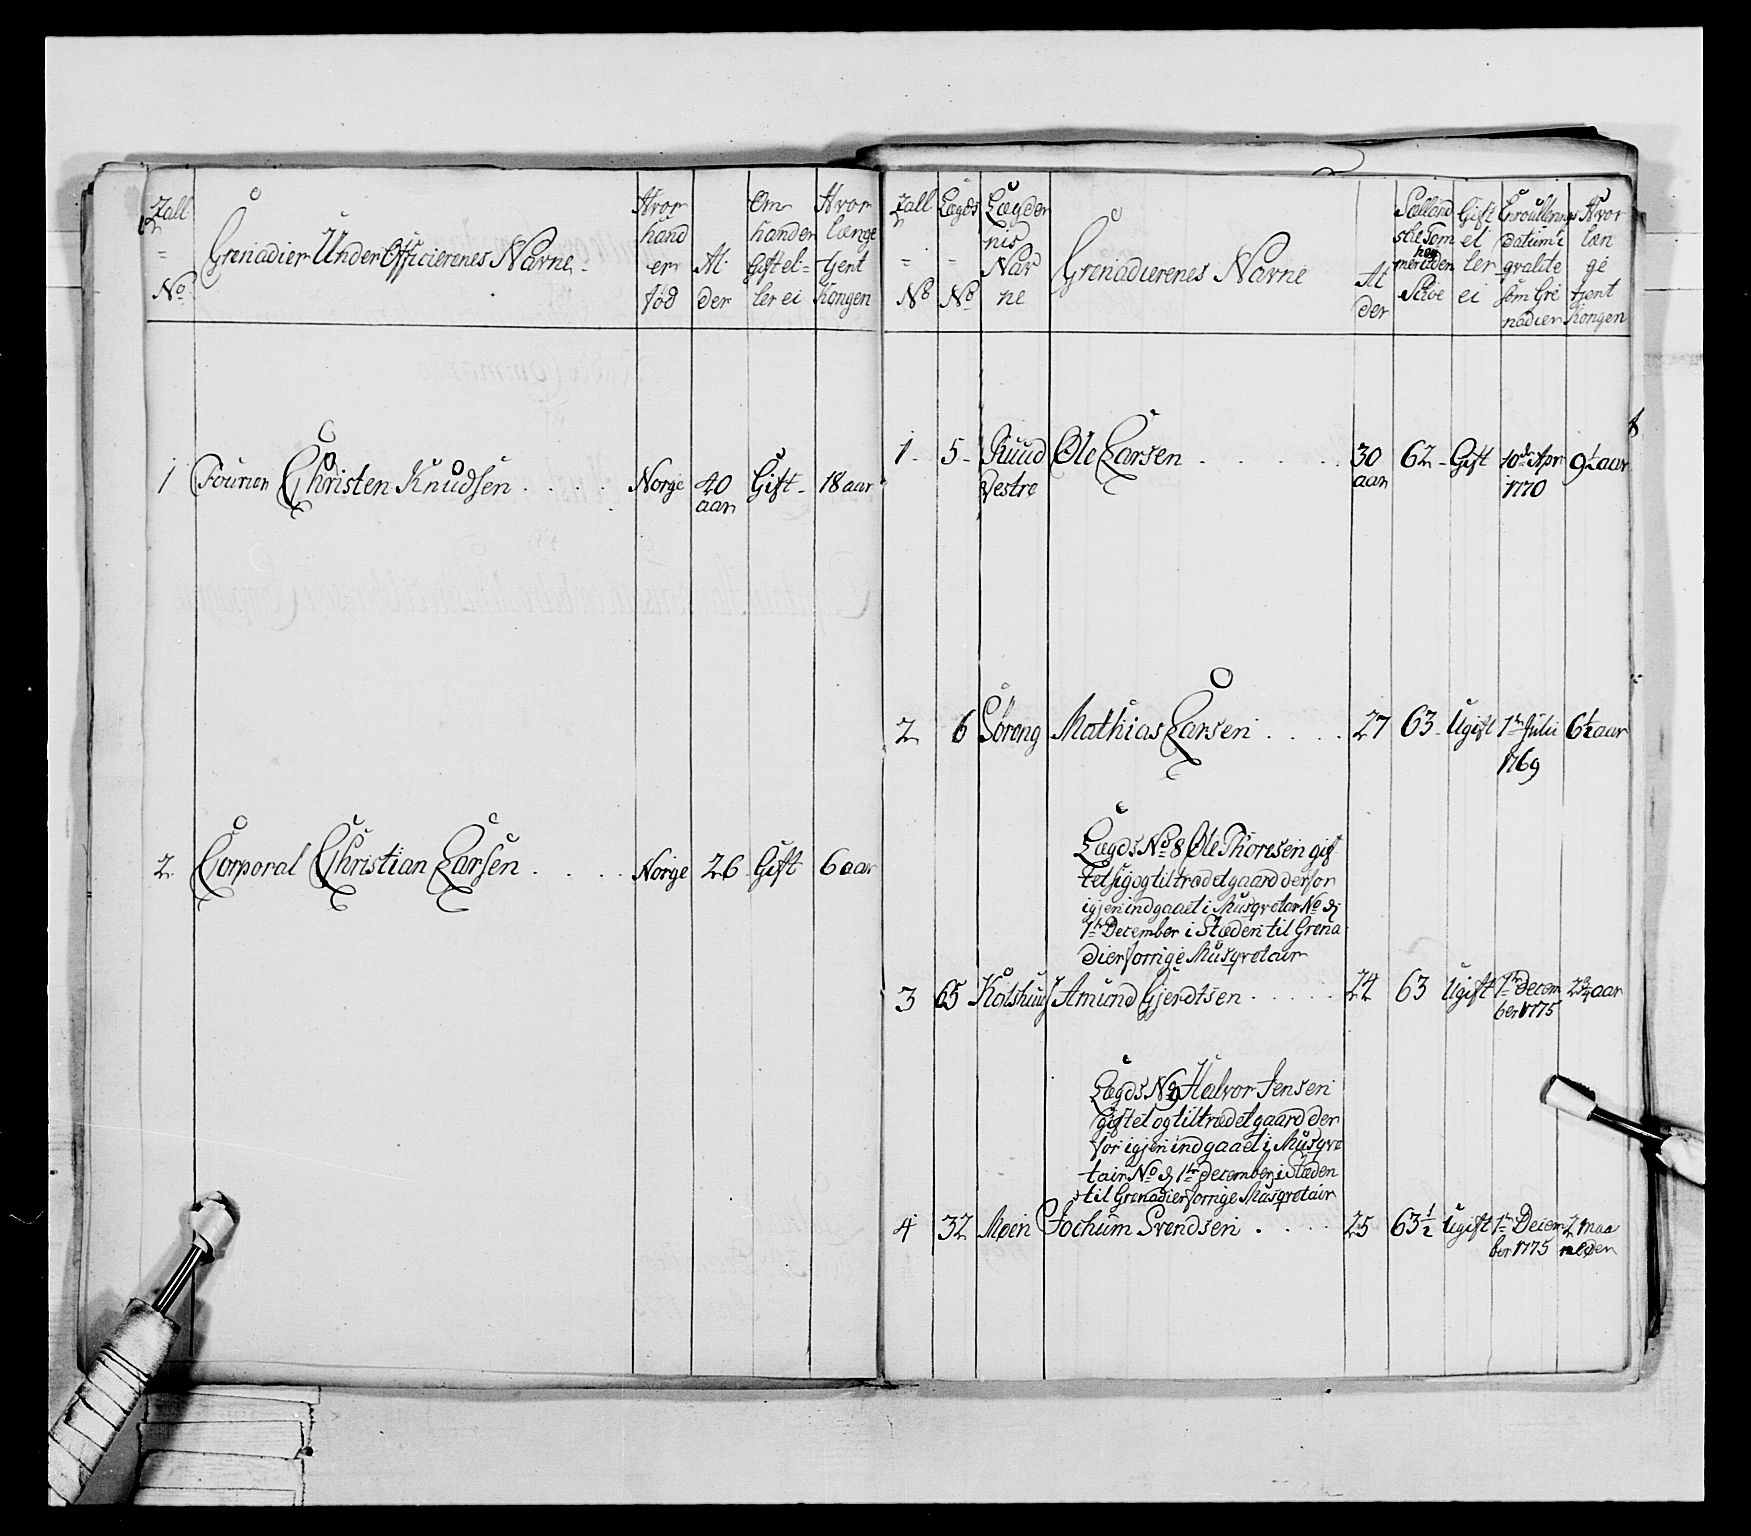 Tall = No
Grenadier Under Officierenes Navne
Hvor hand er fød
Al der
Om handen Gift el= ler ei
Hvor længe tient Kongen
1 Fourier Christen Knudsen . . . . Norge 40 aar Gift 18 aar
2 Corporal Christian Larsen . . . . Norge 26 Gift 6 aar
Tall = No
Lægds = No
Lægder nis Nav ne
Grenadierenes Navne
Al der
Gift el ler ei
Enroullerings datum i qvalite som Gre nadier
Hvor læn ge tient Kongen
8
1 5 Ruud Vestre Ole Larsen . . . . . 30 aar 62 Gift 10de Apr 1770 9½ aar
2 6 Søreng Mathias Larsen . . . . 27 63 Ugift 1te Julii 1769 6½ aar
Lægds No 8 Ole Thoresen gif
tet sig og tiltrædet gaard derfor
igien indgaaet i Musqvetar No
1te December i Stæden til Grena
dier forrige Musqvetair
3 65 Amund Gjerdtsen . . . . . 24 63 Ugift 1te Decem ber 1775 2¾ aar
Lægds No 9 Halvor Jensen
giftet og tiltrædet gaard der
for igien indgaaet i Musqve
tair No 1te December i Stæden
til Grenadier forrige Musqvetair
4 32 Moen Jochum Svendsen . . . . 25 63½ Ugift 1te Decem ber 1775 2 maa neder